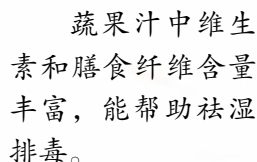 蔬果汁中维生
素和膳食纤维含量
丰富，能帮助祛湿
排毒。